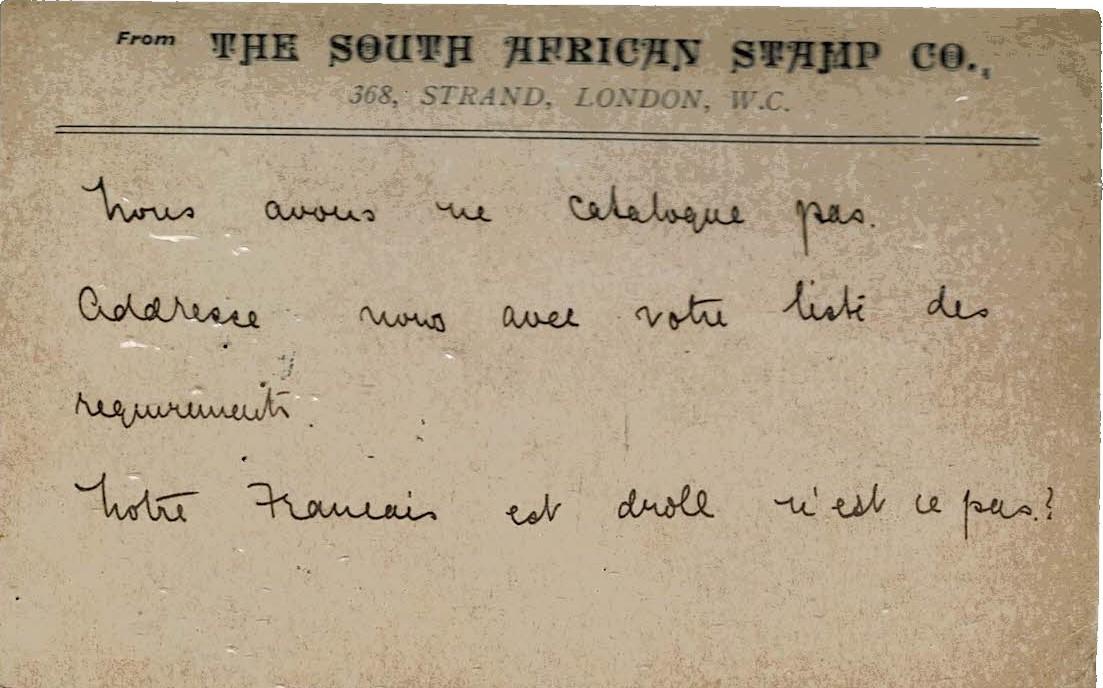 From THE SOUTH AFRICAN STAMP CO.,
368, STRAND, LONDON, W.C.
Nous avons ne catalogue pas.
Addresse nous avec votre liste des
requirements.
Notre Francais est droll n'est ce pas.?